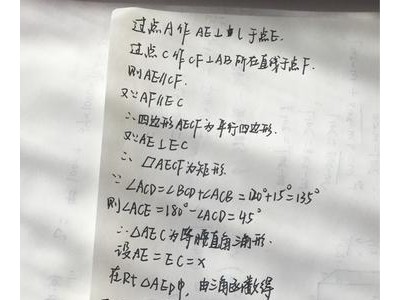 过点A作AE⊥l于点E.
过点C作CF⊥AB所在直线于点F.
则AE∥CF.
又∵AF∥EC
∴四边形AECF为平行四边形.
又∵AE⊥EC
∴▱AECF为矩形.
∵∠ACD=∠BCD+∠ACB=120°+15°=135°
则∠ACE=180°-∠ACD=45°
∴△AEC为等腰直角三角形.
设AE=EC=x
在Rt△AED中,由三角函数得